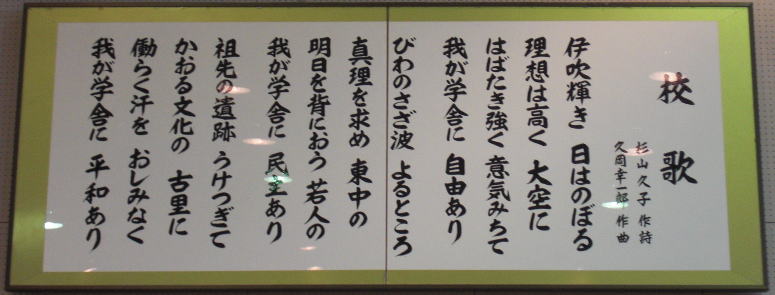 校歌
杉山久子 作詩
久岡幸一郎 作曲
伊吹輝き 日はのぼる
理想は高く 大空に
はばたき強く 意気みちて
我が学舎に 自由あり
びわのさざ波 よるところ
真理を求め 東中の
明日を背におう 若人の
我が学舎に 民主あり
祖先の遺跡 うけつぎて
かおる文化の 古里に
働らく汗を おしみなく
我が学舎に 平和あり